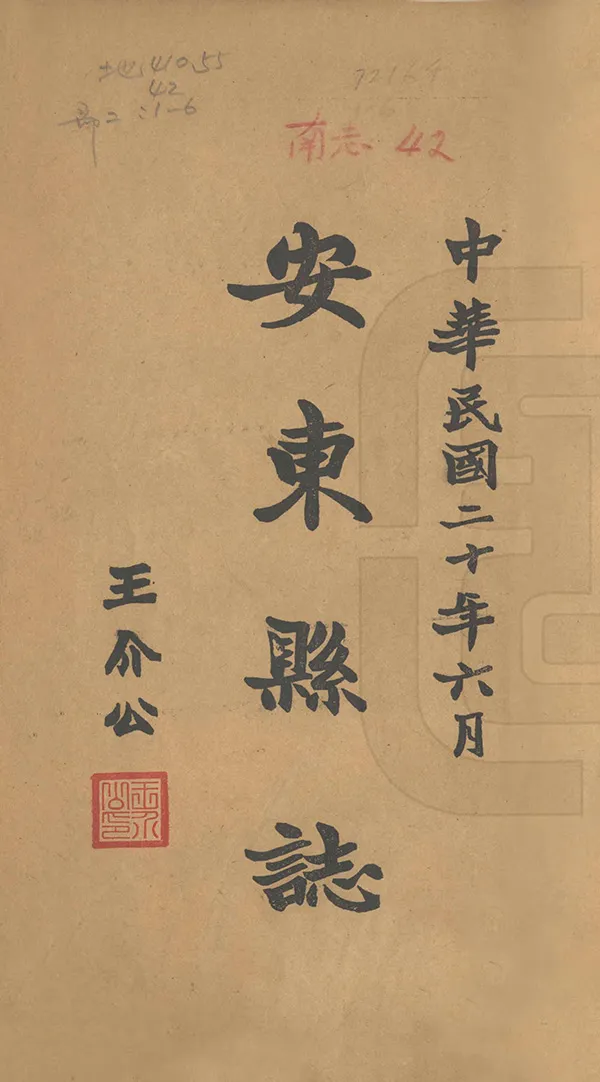 地410.55
42
:1-6
72164
南志 42
中華民國二十年六月
安東縣誌
王介公
王介公印